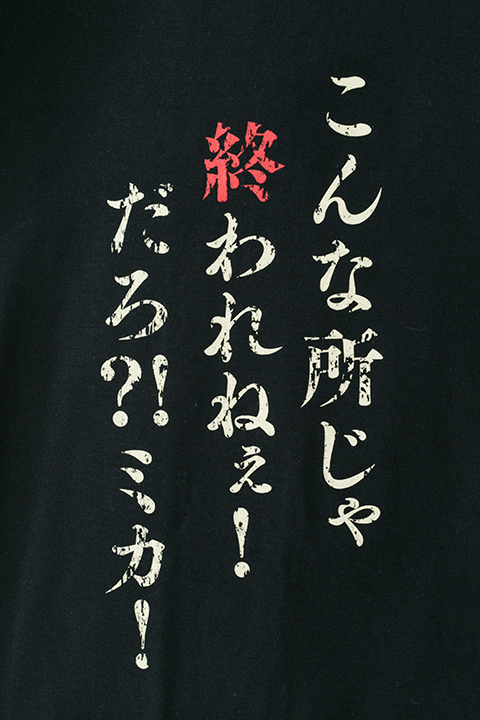 こんな所じゃ
終われねぇ!
だろ?!ミカ!